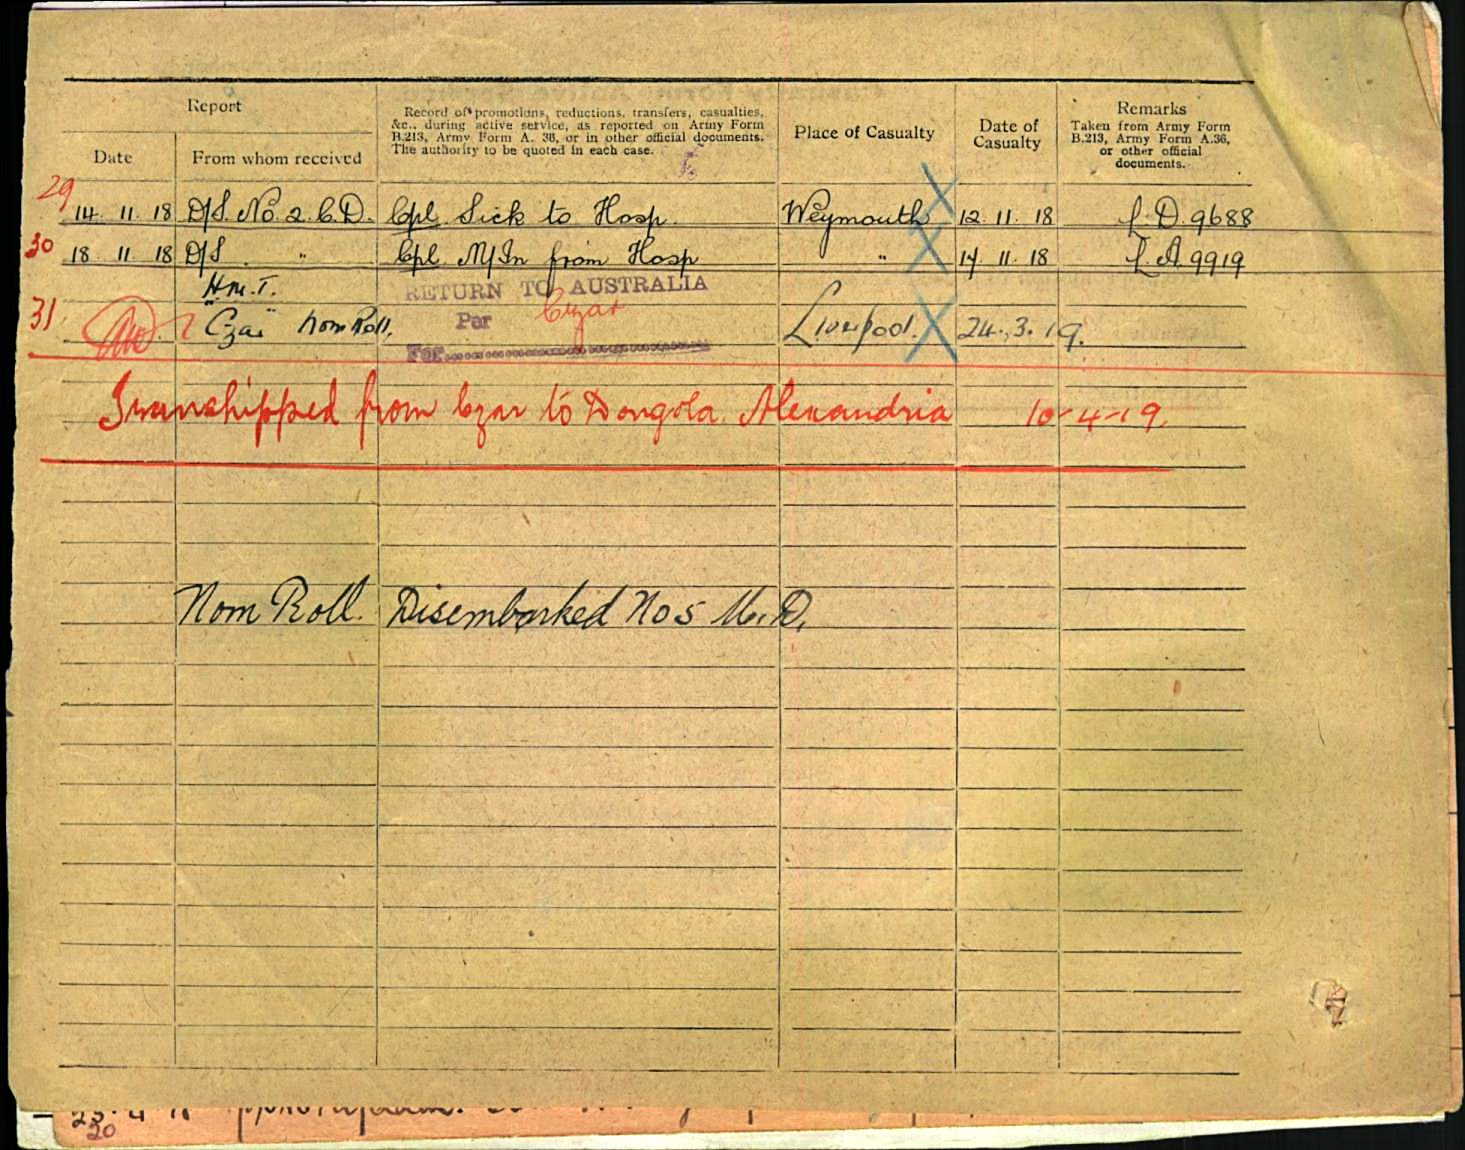 Report
Date
From whom received
Record of promotions, reductions, transfers, casualties,
&c., during active service, as reported on Army Form
B.213, Army Form A. 36, or in other official documents.
The authority to be quoted in each case.
Place of Casualty
Date of
Casualty
Remarks
Taken from Army Form
B.213, Army Form A.36,
or other official
documents.
29 14. 11. 18 D/S. No. 2. C.D. Cpl. Sick to Hosp. Weymouth 12. 11. 18 D. 9688
30 18 11 18 D/S . " Cpl. M/In from Hosp " 11. 18 A 9919
H.M.T. RETURN TO AUSTRALIA
31 "Czar" Nom Roll. Per Czar Liverpool. 24.3.19.
For
Transhipped from Czar to Dongola. Alexandria 10-4-19.
Nom Roll. Disembarked No 5 M.D.
20